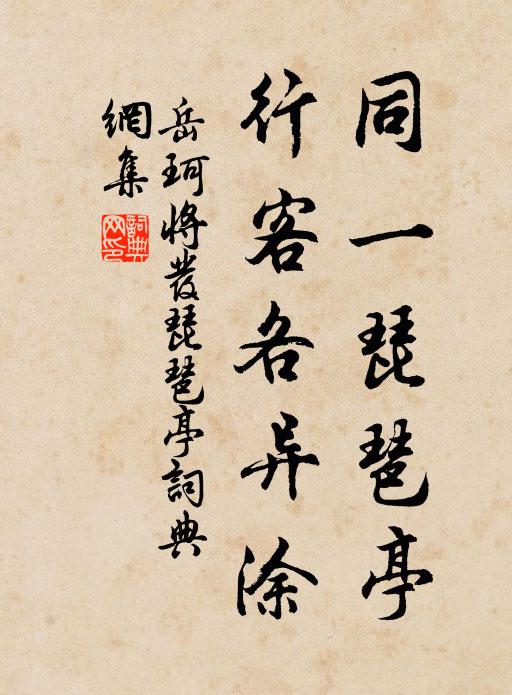 同一琵琶亭
行客各异涂
岳珂将发琵琶亭詞典
網集
詞典
网印